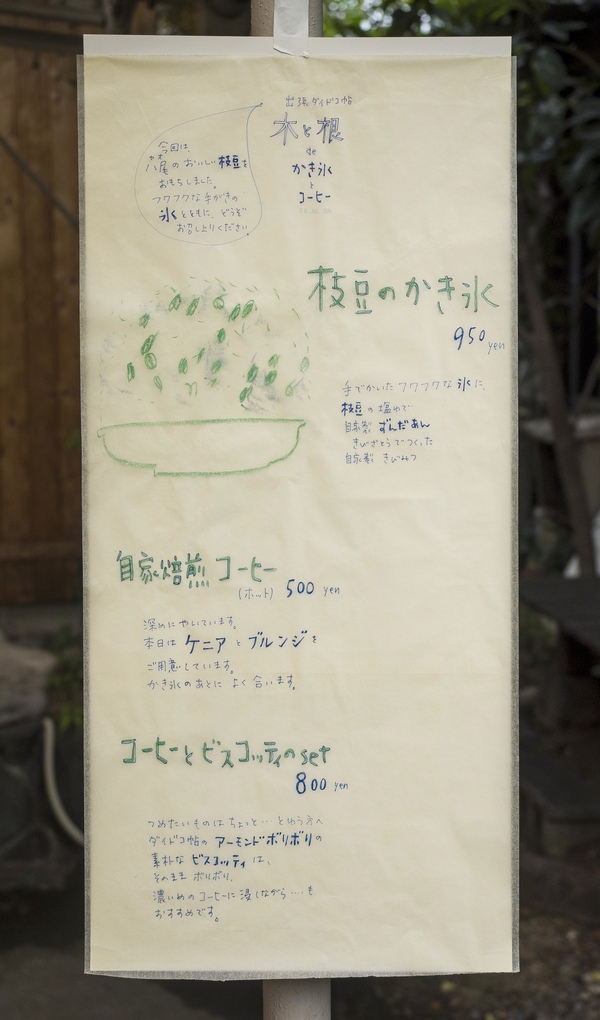 出張ダイドコ帖
木と根
de
かき氷
と
コーヒー
今回は、
八尾のおいしい枝豆を
おもちしました。
フワフワな手がきの
氷とともに、どうぞ
お召し上りください。
枝豆のかき氷
950 yen
手でかいたフワフワな氷に、
枝豆の塩ゆで
自家製 ずんだあん
きびざとうでつくった
自家製 きびみつ
自家焙煎コーヒー
(ホット) 500 yen
深めにやいています。
本日は ケニア と ブルンジ を
ご用意しています。
かき氷のあとに よく合います。
コーヒーとビスコッティのset
800 yen
つめたいものはちょっと…とゆう方へ
ダイドコ帖の アーモンドボリボリの
素朴な ビスコッティ は、
そのまま ボリボリ、
濃いめのコーヒーに浸しながら‥‥も
おすすめです。